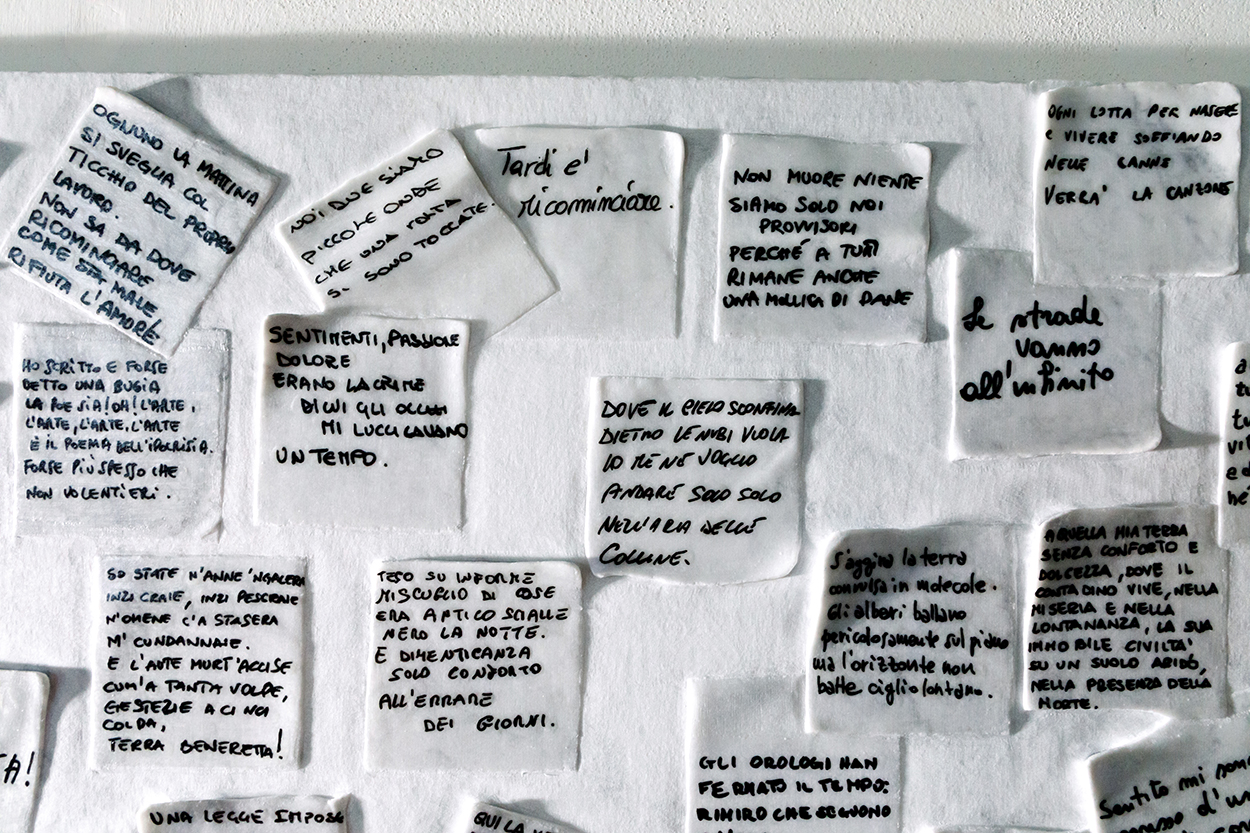 OGNUNO LA MATTINA
SI SVEGLIA COL
TICCHIO DEL PROPRIO
LAVORO.
NON SA DA DOVE
RICOMINCIARE
COME STA MALE
RIFIUTA L'AMORE
NOI DUE SIAMO
PICCOLE ONDE
CHE UNA VOLTA
SI SONO TOCCATE.
Tardi e'
ricominciare.
NON MUORE NIENTE
SIAMO SOLO NOI
PROVVISORI
PERCHÉ A TUTTI
RIMANE ANCHE
UNA MOLLICA DI PANE
OGNI LOTTA PER NASCERE
E VIVERE SOFFIANDO
NELLE CANNE
VERRA' LA CANZONE
Le strade
vanno
all'infinito
HO SCRITTO E FORSE
DETTO UNA BUGIA
LA POESIA! OH! L'ARTE,
L'ARTE, L'ARTE, L'ARTE
È IL POEMA DELL'IPOCRISIA.
FORSE PIÙ SPESSO CHE
NON VOLENTIERI.
SENTIMENTI, PASSIONE
DOLORE
ERANO LACRIME
DI CUI GLI OCCHI
MI LUCCICAVANO
UN TEMPO.
DOVE IL CIELO SCONFINA
DIETRO LE NUBI VIOLA
IO ME NE VOGLIO
ANDARE SOLO SOLO
NELL'ARIA DELLE
COLLINE.
SO STATE N'ANNE 'NGALERA
INZI CRAIE, INZI PESCRINE
N'OMENE C'A STASERA
M' CUNDANNAIE.
E L'AUTE MURT'ACCISE
CUM'A TANTA VOLPE,
GESTEZIE A CI NOI
COLDA,
TERRA BENERETTA!
TESO SU INFORME
MISCUGLIO DI COSE
ERA ANTICO SCIALLE
NERO LA NOTTE.
E DIMENTICANZA
SOLO CONFORTO
ALL'ERRARE
DEI GIORNI.
S'aggira la terra
convulsa in molecole.
Gli alberi ballano
pericolosamente sul piano
ma l'orizzonte non
batte ciglio lontano.
A QUELLA MIA TERRA
SENZA CONFORTO E
DOLCEZZA, DOVE IL
CONTADINO VIVE, NELLA
MISERIA E NELLA
LONTANANZA, LA SUA
IMMOBILE CIVILTA'
SU UN SUOLO ARIDO,
NELLA PRESENZA DELLA
MORTE.
GLI OROLOGI HAN
FERMATO IL TEMPO:
RIMIRO CHE SEGNONO
TA!
UNA LEGGE IMPOSS
QUI LA
Sentito mi sono
d'un